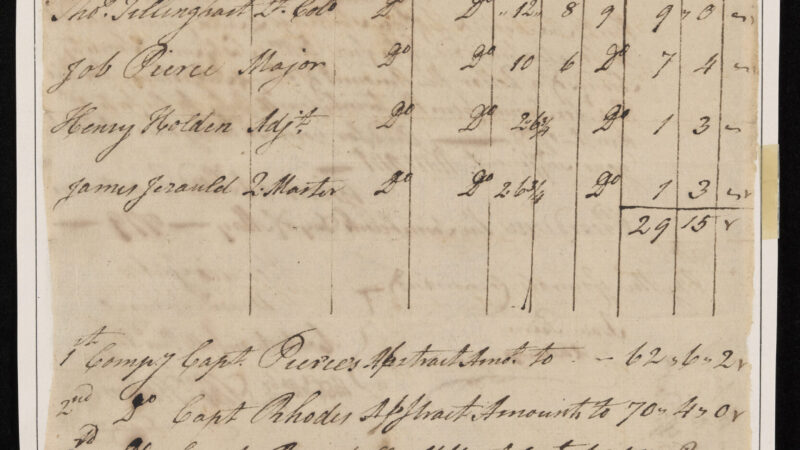 Tho.s Tillinghast Lt. Colo Do Do 12 8 9 9 0
Job Pierce Major Do Do 10 6 Do 7 4
Henry Holden Adjt. Do Do 2.6¾ Do 1 3
James Jerauld Q. Master Do Do 2.6¾ Do 1 3
29 15
1st Compy Capt. Pierces Abstract Amot. to — 62 " 6 " 2
2nd Do Capt Rhodes Abstract Amount to 70 " 4 " 0
rd